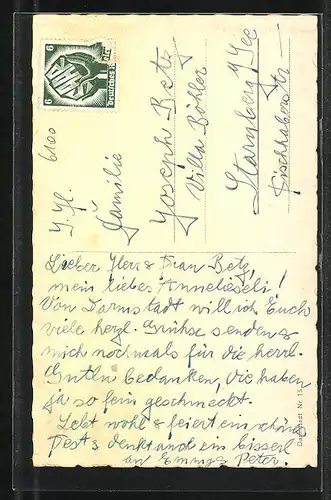 6
6
Deutsches Reich
6100
S. Hl.
Familie
Joseph Betz
Villa Böhler
Starnberg a/See
Lieber Herr & Frau Betz,
mein liebes Annelieseli!
Von Darmstadt will ich Euch
viele herzl. Grühse senden &
mich nochmals für die herrl.
Gutln bedanken, die haben
ja so fein geschmeckt.
Lebt wohl & feiert ein schönes
Fest & denkt and ein bisserl
an Emmy & Peter.
Darmstadt Nr. 15